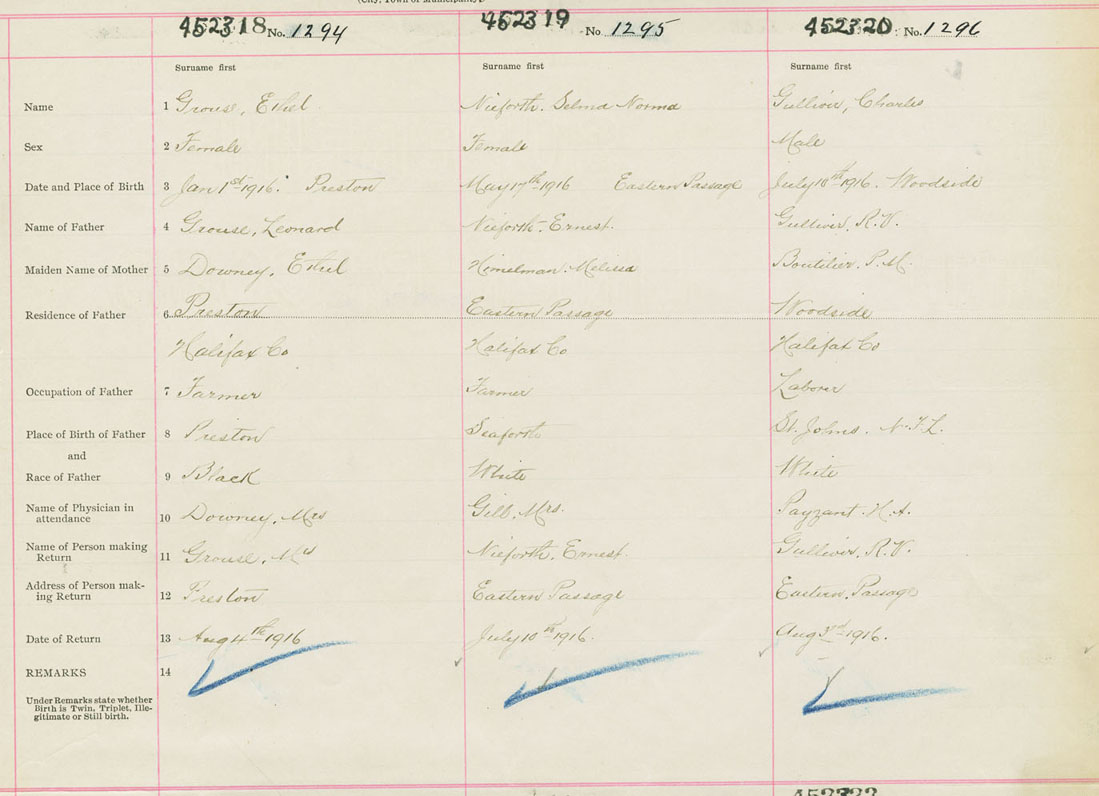 (City, Town or Municipality)
45231 8 No. 1294
452319 No. 1295
452320 No. 1296
Surname first Surname first Surname first
Name 1 Grouse, Ethel Nieforth. Selma Norma Gulliver, Charles
Sex 2 Female Female Male
Date and Place of Birth 3 Jan 1st 1916. Preston May 17th 1916 Eastern Passage July 18th 1916. Woodside
Name of Father 4 Grouse, Leonard Nieforth. Ernest. Gulliver, R.V.
Maiden Name of Mother 5 Downey, Ethel Himelman. Melissa Boutilier P.M.
Residence of Father 6 Preston Eastern Passage Woodside
Halifax Co Halifax Co Halifax Co
Occupation of Father 7 Farmer Farmer Laborer
Place of Birth of Father 8 Preston Seaforth St. Johns. N.F.L.
and
Race of Father 9 Black White White
Name of Physician in
attendance 10 Downey, Mrs Gill. Mrs. Payzant. H.A.
Name of Person making
Return 11 Grouse, Mrs Nieforth, Ernest. Gulliver, R.V.
Address of Person mak-
ing Return 12 Preston Eastern Passage Eastern Passage
Date of Return 13 Aug 4th 1916 July 10th 1916. Aug 3rd 1916.
REMARKS 14
Under Remarks state whether
Birth is Twin, Triplet, Ille-
gitimate or Still birth.